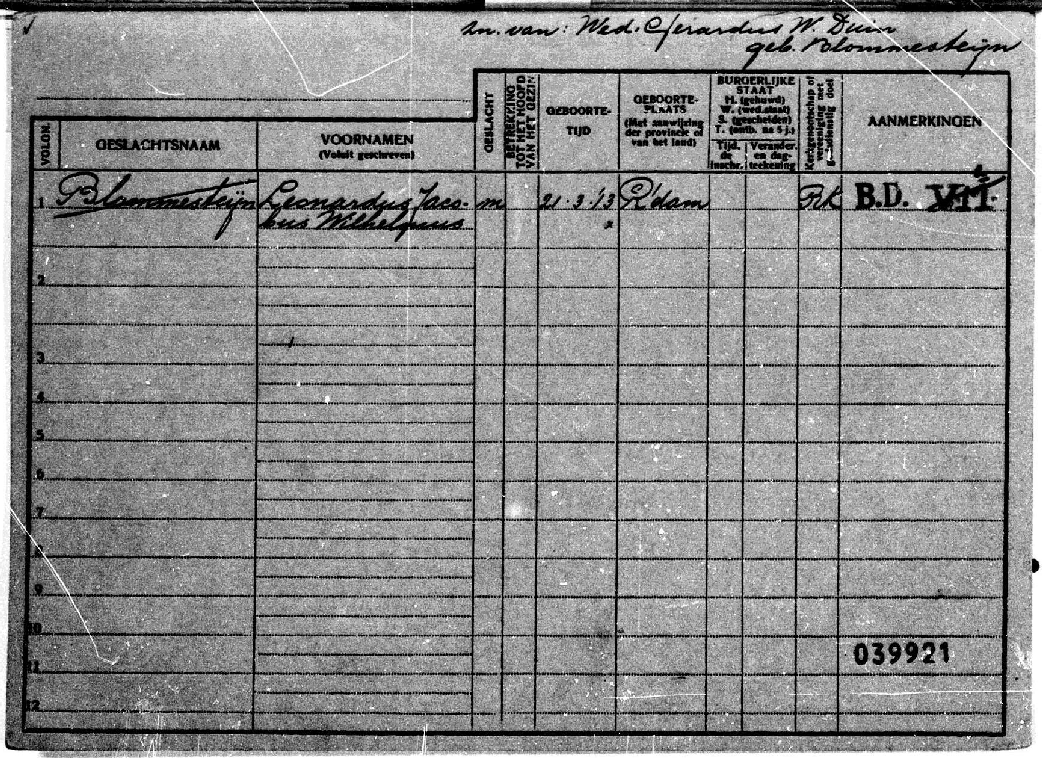 zn. van: Wed. Gerardus W. Duin
geb. Blommesteijn
VOLGN.
GESLACHTSNAAM
VOORNAMEN
(Voluit geschreven)
GESLACHT
BETREKKING
TOT HET HOOFD
VAN HET GEZIN
GEBOORTE-
TIJD
GEBOORTE-
PLAATS
(Met aanwijzing
der provincie of
van het land)
BURGERLIJKE
STAAT
H. (gehuwd)
W. (wed.staat)
S. (gescheiden)
T. (ontb. na 5 j.)
Tijd.
de
inschr.
Verander.
en dag-
teekening
Kerkgenootschap of
vereeniging met
godsdienstig doel
AANMERKINGEN
1 Blommesteijn Leonardus Jaco- m 21-3-'13 R'dam RK B.D. VII
bus Wilhelmus
2
3
4
5
6
7
8
9
10
039921
11
12